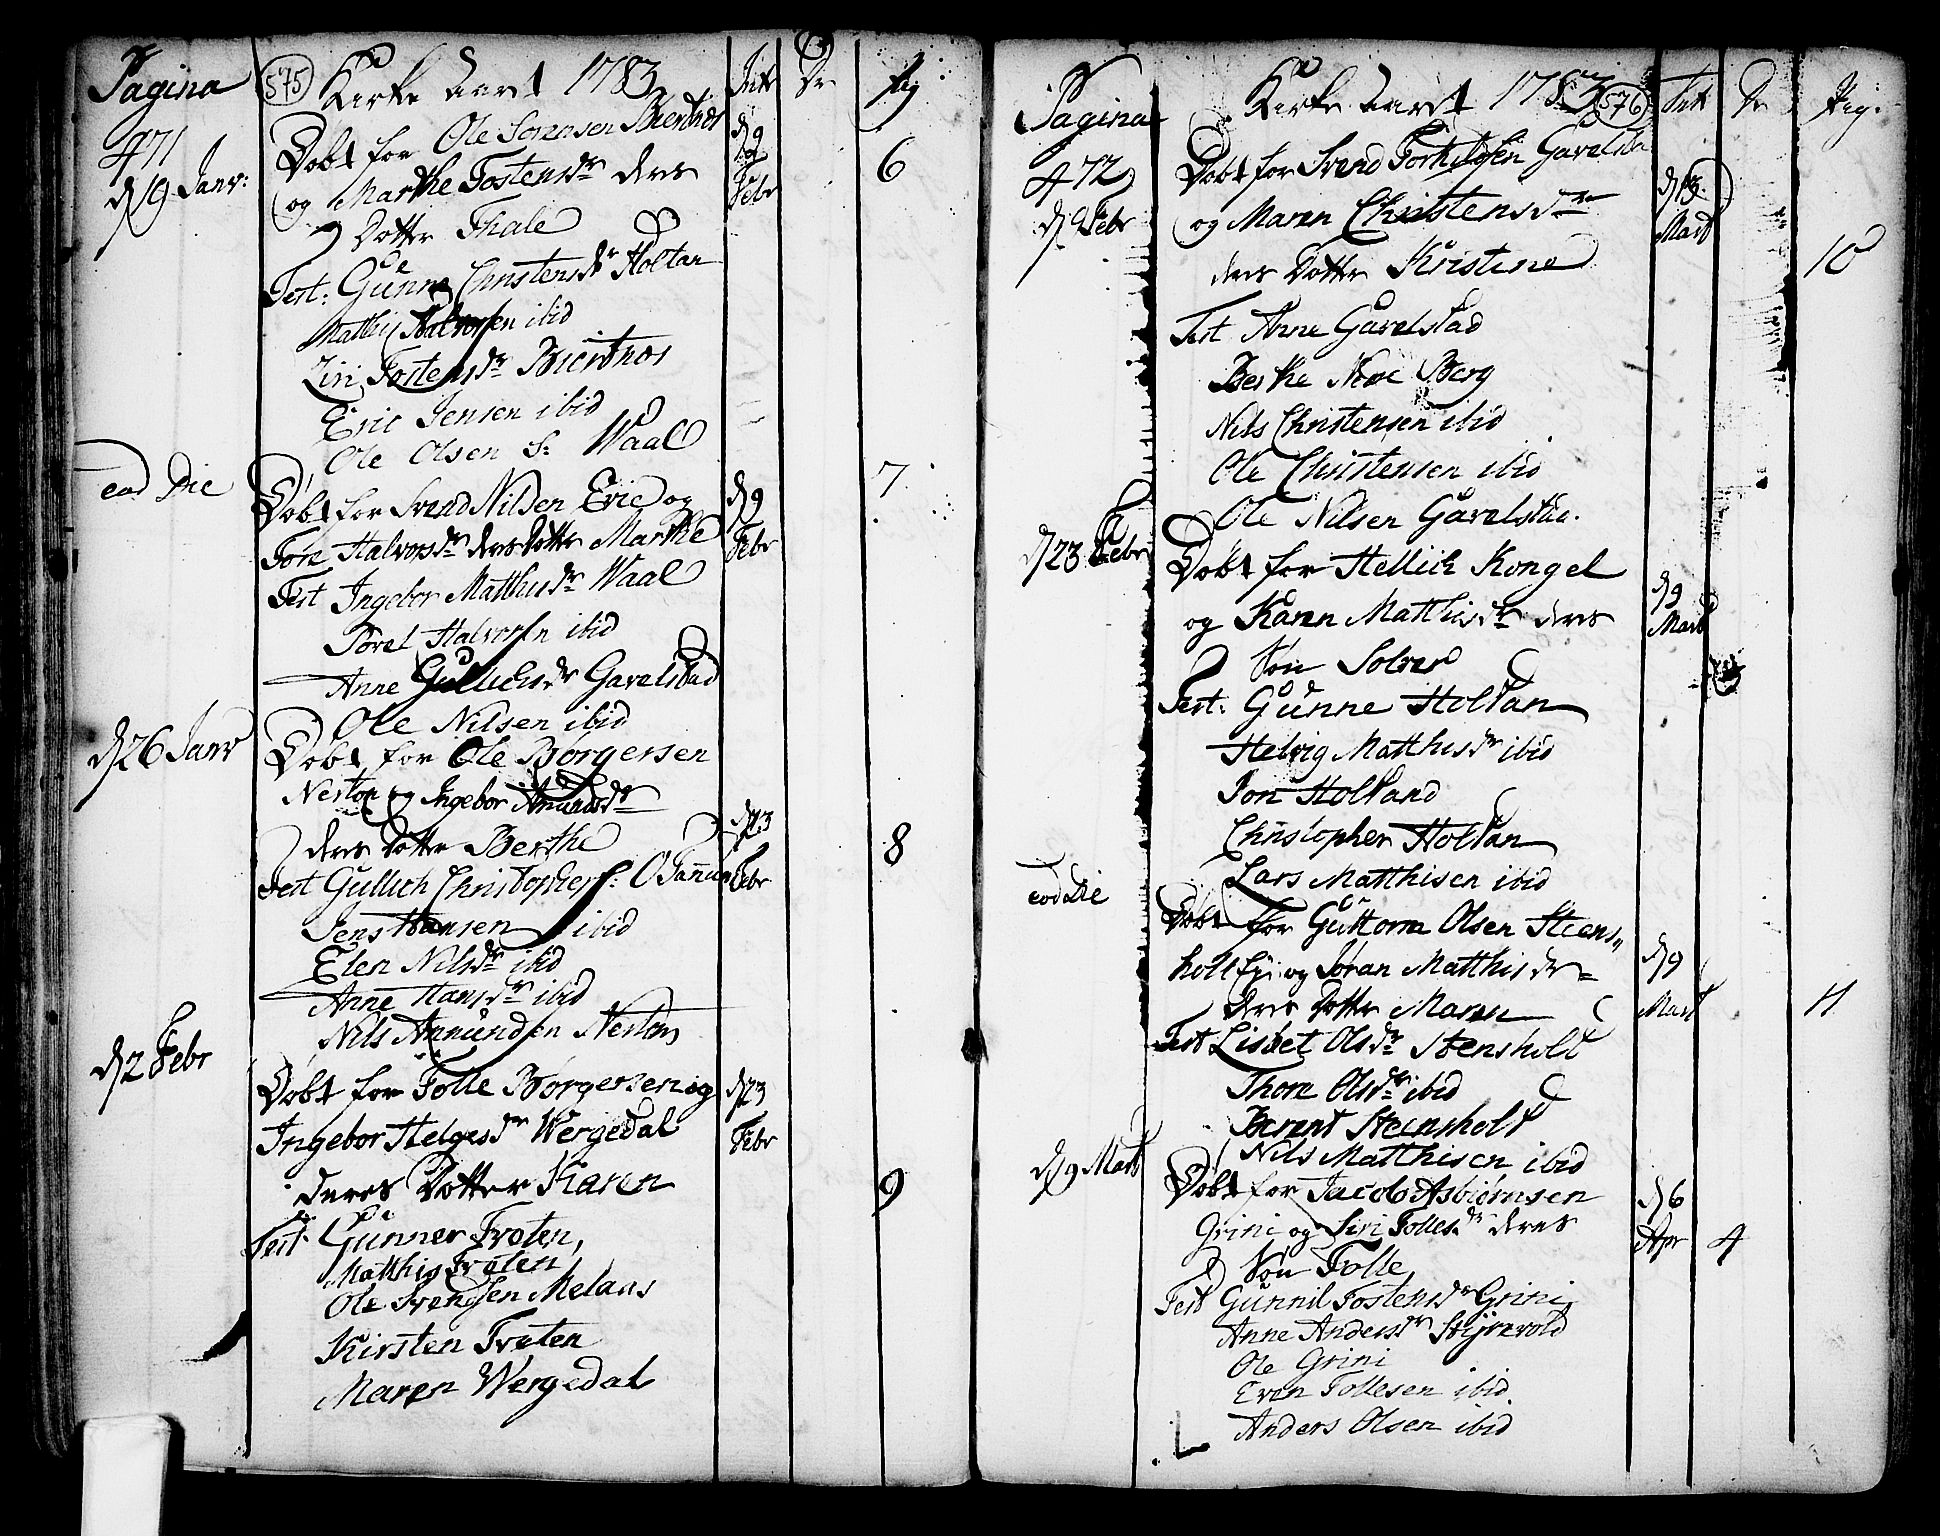 Pagina 575 Kirke Aaret 1783 Intr Dr Pig
471
d 9 Janv: Dobt for Ole Sorensen Biertnes d 9 Febr 6
og Marthe Tostensdr deres
Dotter Thale
Test: Gunne Christensdr Holtan
Mathis Halvorsen ibid
Ziri Tostensdr Biertnes
Eric Jensen ibid
Ole Olsen S: Waal
eod Die Dobt for Svend Nilsen Erie og d 9 7
Tore Halvorsdr deres Dotter Marthe Febr
Test Ingebor Matthisdr Waal
Torel Halvorsen ibid
Anne Gullichsdr Gavelstad
Ole Nilsen ibid
d 26 Janv Dobt for Ole Borgersen
Neston og Ingebor Amundsdr
deres Dotter Berthe d 23 8
Test Gullich Christophers: Febr
Jens Hansen ibid
Elen Nilsdr ibid
Anne Hansdr ibid
Nils Amundsen Neston
d 2 Febr Dobt for Tolle Borgersen og d 23
Ingebor Helgesdr Wergedal Febr
deres Dotter Karen 9
Test: Gunner Traten
Matthis Traten
Ole Svendsen Melaas
Kirsten Traten
Maren Wergedal
Pagina Kirke Aaret 1783 576 Intr Dr Pig.
472
d 9 Febr Dobt for Svend Torkilsen Gavelsta d 13
og Maren Christensdr Mart 10
deres Dotter Kristine
Test Anne Gavelstad
Berthe Nore Berg
Nils Christensen ibid
Ole Christensen ibid
Ole Nilsen Gavelstad.
d 23 Febr Dobt for Hellich Kongel d 9
og Karen Matthisdr deres Mart
Søn Solver
Test: Gunne Holtan
Helvig Matthisdr ibid
Jon Holtand
Christopher Holtan
Lars Matthisen ibid
eod Die Dobt for Guttorm Olsen Steens„ d 9
holt Eje og Søran Matthisdr Mart 11
deres Dotter Maren
Test Lisbet Olsdr Stensholt
Thore Olsdr ibid
Berent Steensholt
Nils Matthisen ibid
d 9 Mart Dobt for Jacob Asbiørnsen d 6
Grini og Siri Tollesdr deres Apr 4
Søn Tolle
Test Gunnil Tostensdr Grini
Anne Andersdr Styrevold
Ole Grini
Even Tollesen ibid
Anders Olsen ibid